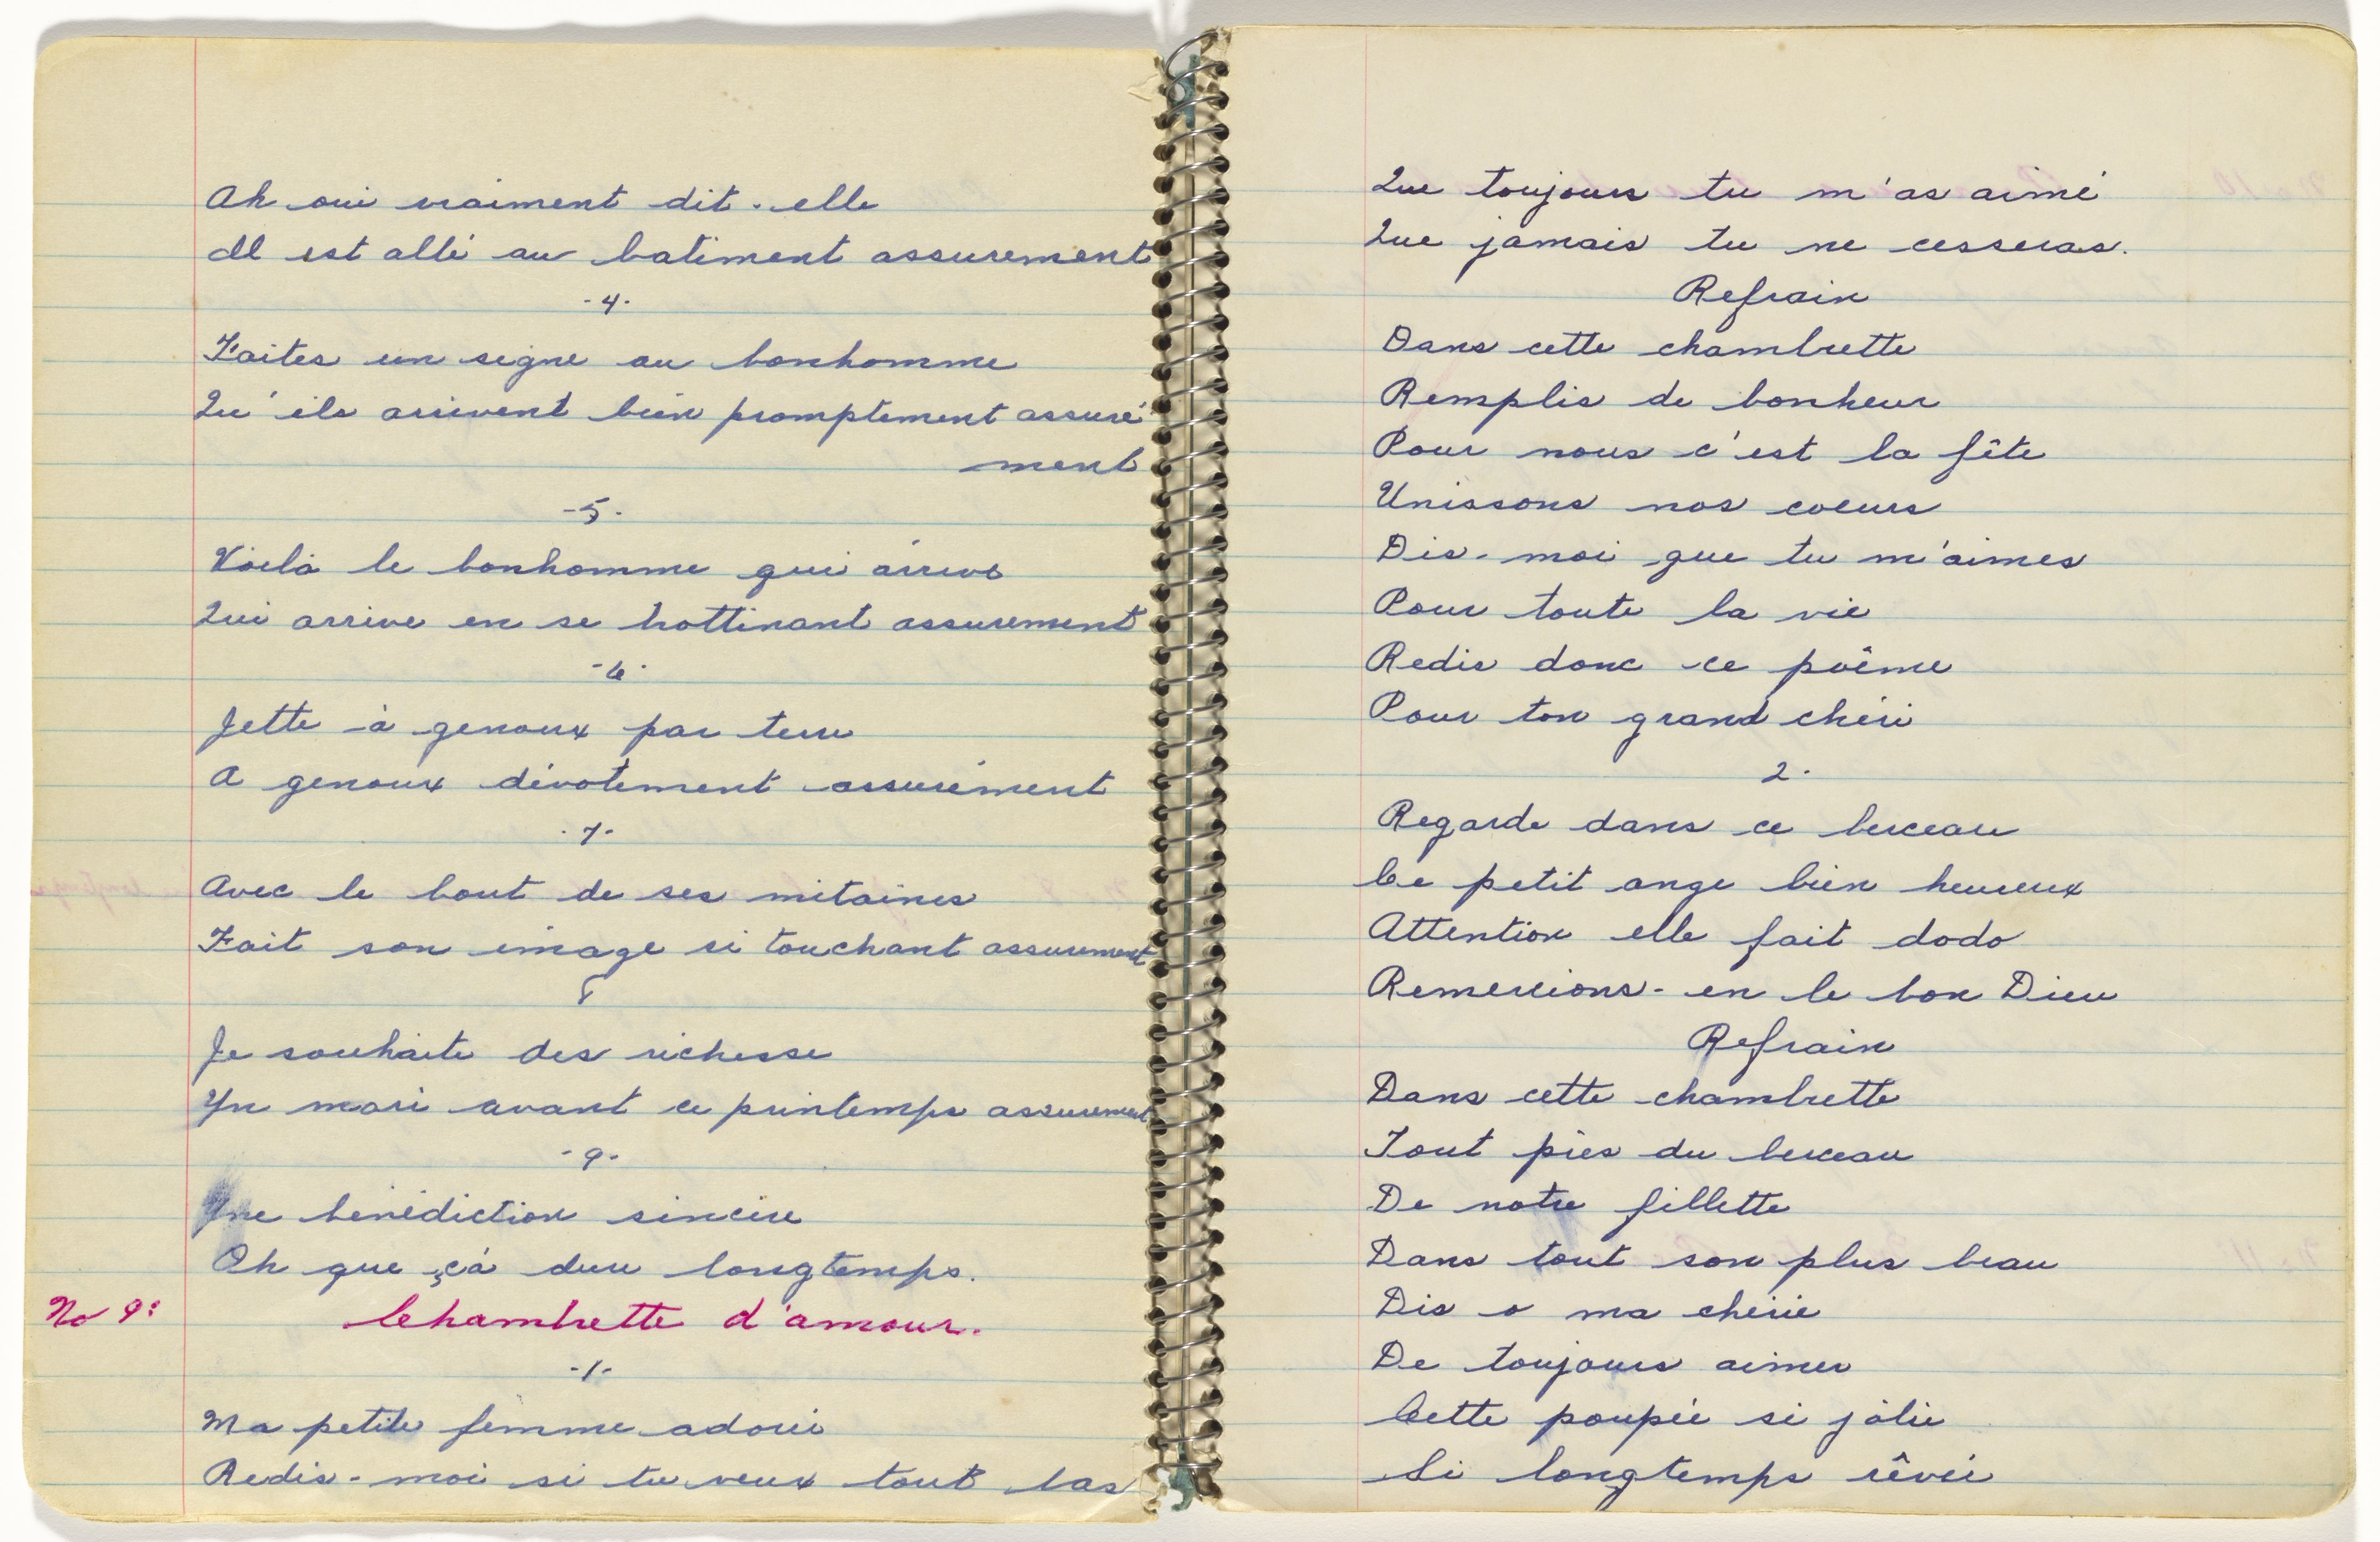 Ah oui vraiment dit-elle
Il est allé au batiment assurement
-4-
Faites un signe au bonhomme
Qu'ils arrivent bien promptement assuré
ment
-5-
Voilà le bonhomme qui arrive
Qui arrive en se trottinant assurement
-6-
Jette à genoux par terre
A genoux dévotement assurément
-7-
Avec le bout de ses mitaines
Fait son image si touchant assurement
8
Je souhaite des richesse
Un mari avant ce printemps assurement
-9-
Une bénédiction sincère
Oh que çà dure longtemps.
No 9: Chambrette d'amour.
-1-
Ma petite femme adorée
Redis-moi si tu veux tout bas
Que toujours tu m'as aimé
Que jamais tu ne cesseras.
Refrain
Dans cette chambrette
Remplis de bonheur
Pour nous c'est la fête
Unissons nos coeurs
Dis-moi que tu m'aimes
Pour toute la vie
Redis donc ce poême
Pour ton grand chéri
2-
Regarde dans ce berceau
Ce petit ange bien heureux
Attention elle fait dodo
Remercions-en le bon Dieu
Refrain
Dans cette chambrette
Tout près du berceau
De notre fillette
Dans tout son plus beau
Dis o ma chérie
De toujours aimer
Cette poupée si jolie
Si longtemps rêvée